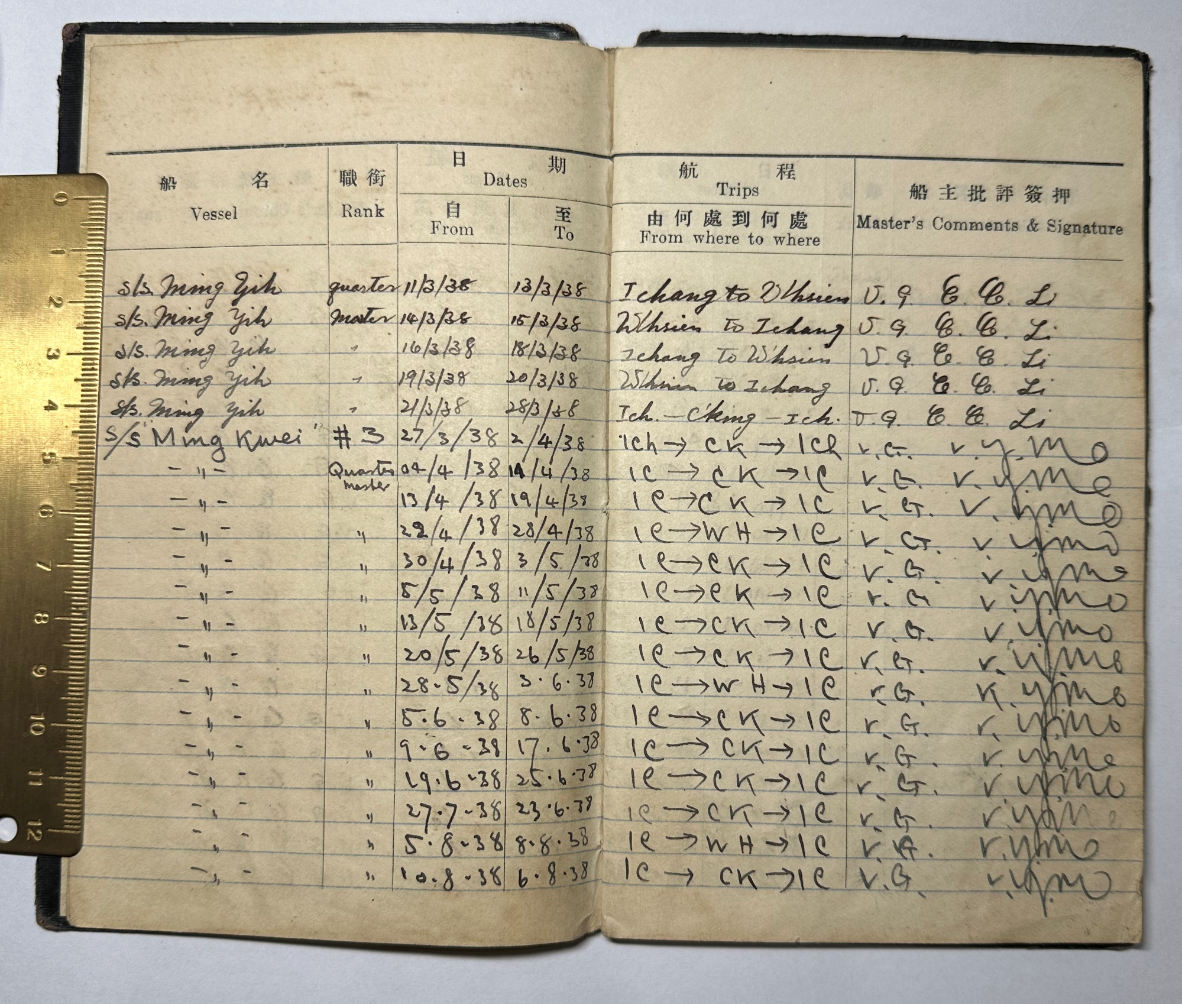 船名 職銜 日期 航程 船主批評簽押
Vessel Rank Dates Trips Master's Comments & Signature
自 至 由何處到何處
From To From where to where
s/s. Ming Yih quarter 11/3/38 13/3/38 Ichang to W'hsien V. G. C. C. Li
s/s. Ming Yih master 14/3/38 15/3/38 W'hsien to Ichang V. G. C. C. Li
s/s. Ming Yih " 16/3/38 18/3/38 Ichang to W'hsien V. G. C. C. Li
s/s. Ming Yih " 19/3/38 20/3/38 W'hsien to Ichang V. G. C. C. Li
s/s. Ming Yih " 21/3/38 28/3/38 Ich. - C'king - Ich. V. G. C. C. Li
s/s "Ming Kwei" #3 27/3/38 2/4/38 Ich → CK → Ich V. G. V. Y. Mo
- " - Quarter master 04/4/38 11/4/38 IC → CK → IC V. G. V. Y. Mo
- " - 13/4/38 19/4/38 IC → CK → IC V. G. V. Y. Mo
- " - " 22/4/38 28/4/38 IC → WH → IC V. G. V. Y. Mo
- " - " 30/4/38 3/5/38 IC → CK → IC V. G. V. Y. Mo
- " - " 5/5/38 11/5/38 IC → CK → IC V. G. V. Y. Mo
- " - " 13/5/38 18/5/38 IC → CK → IC V. G. V. Y. Mo
- " - " 20/5/38 26/5/38 IC → CK → IC V. G. V. Y. Mo
- " - " 28·5/38 3·6·38 IC → WH → IC V. G. V. Y. Mo
- " - " 5·6·38 8·6·38 IC → CK → IC V. G. V. Y. Mo
- " - " 9·6·38 17·6·38 IC → CK → IC V. G. V. Y. Mo
- " - " 19·6·38 25·6·38 IC → CK → IC V. G. V. Y. Mo
- " - " 27·7·38 23·6·38 IC → CK → IC V. G. V. Y. Mo
- " - " 5·8·38 8·8·38 IC → WH → IC V. G. V. Y. Mo
- " - " 10·8·38 6·8·38 IC → CK → IC V. G. V. Y. Mo
0
1
2
3
4
5
6
7
8
9
10
11
12